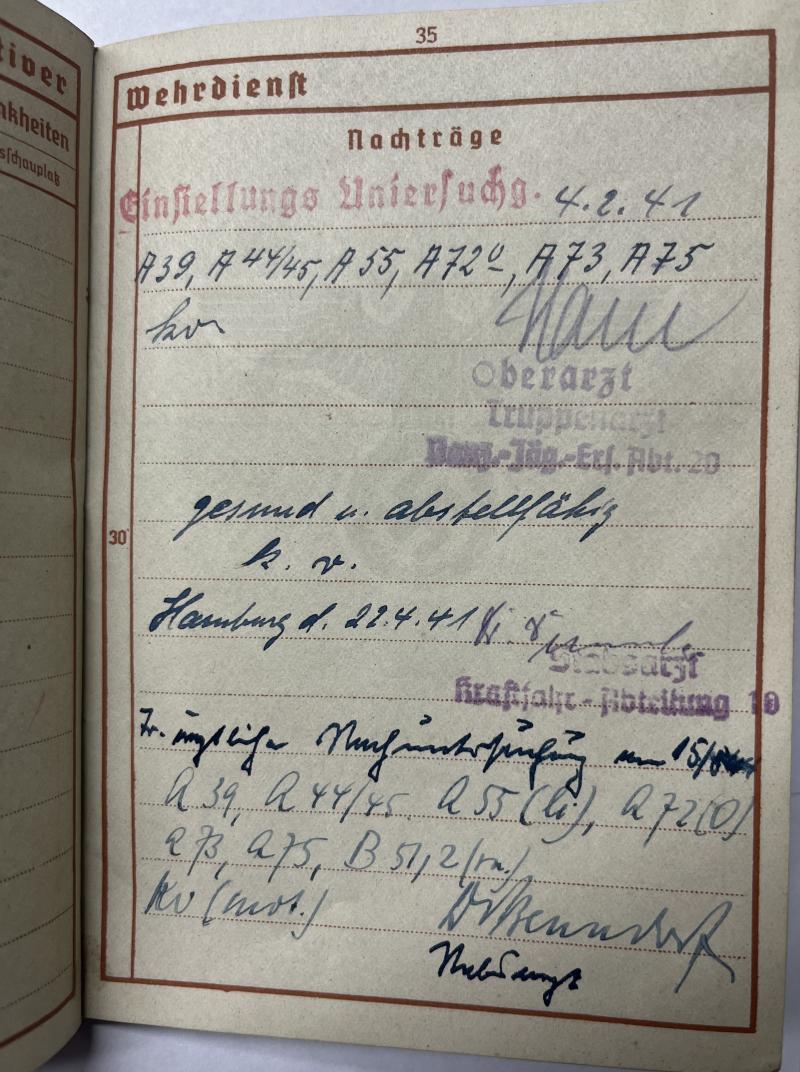 tiver
nkheiten
sschauplatz
35
Wehrdienst
Nachträge
Einstellungs Untersuchg. 4.2.41
A 39, A 44/45, A 55, A 72 0, A 73, A 75
kv
Oberarzt
Truppenarzt
Panz.-Jäg.-Ers. Abt. 20
gesund u. abstellfähig
30
k. v.
Hamburg d. 22.4.41
Stabsarzt
Kraftfahr-Abteilung 10
Tr. ärztliche Nachuntersuchung am 15/
A 39, A 44/45 A 55 (li), A 72 (0)
A 73, A 75, B 51,2
Kv (mot.)